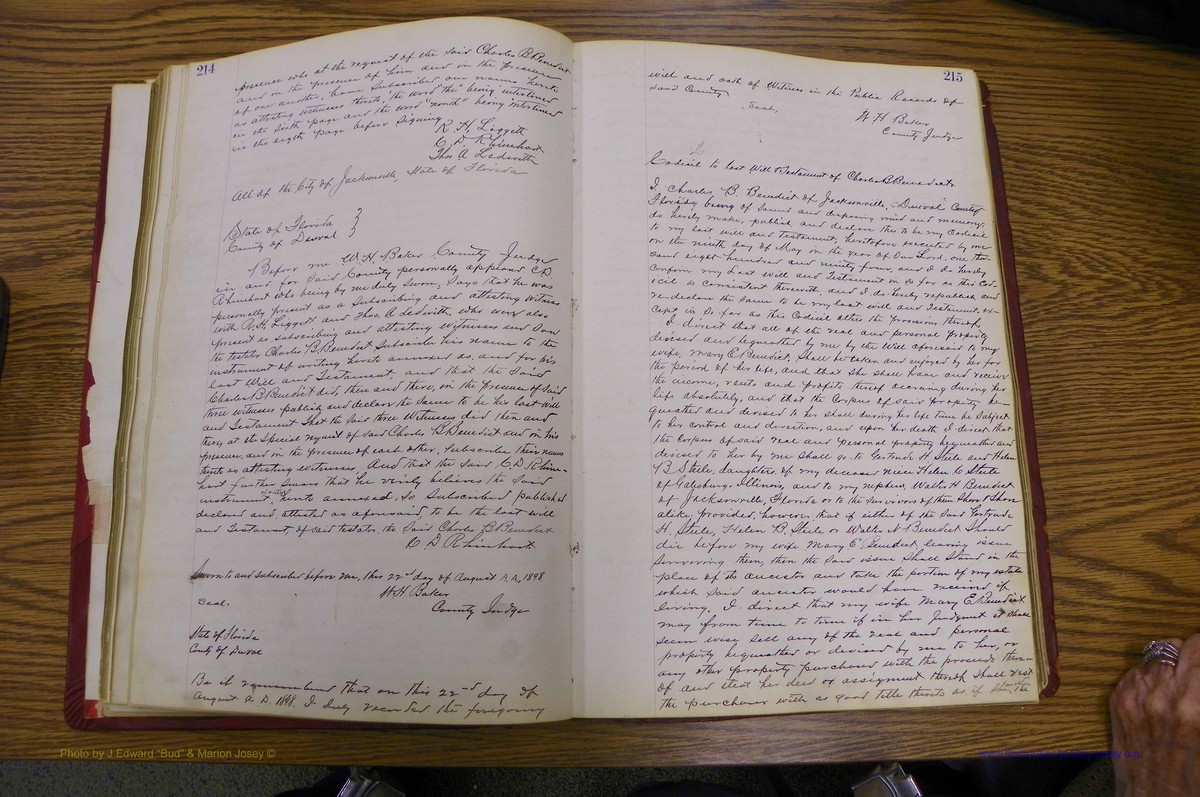 214
presence who at the request of the said Charles B. Benedict
and in the presence of him and in the presence
of one another, have subscribed our names hereto
as attesting witnesses thereto, the word "the" being interlined
in the sixth page and the word "month" being interlined
in the eighth page before signing
R. H. Liggett
C. D. Rhinehart
Thos A. Ledwith
All of the City of Jacksonville, State of Florida
State of Florida }
County of Duval }
Before me W. H. Baker County Judge
in and for said County personally appeared C D
Rhinehart who being by me duly sworn, says that he was
personally present as a subscribing and attesting witness
with R. H. Liggett and Thos. A Ledwith, who were also
present as subscribing and attesting witnesses and saw
the testator Charles B. Benedict subscribe his name to the
instrument of writing hereto annexed as, and for his
last Will and Testament, and that the said
Charles B. Benedict did, then and there, in the presence of said
three witnesses publish and declare the same to be his last will
and Testament that the said three Witnesses did then and
there, at the special request of said Charles B. Benedict and in his
presence, and in the presence of each other, subscribe their names
thereto as attesting witnesses, And that the said C. D. Rhine-
hart further swears that he verily believes the said
instrument hereto annexed, so subscribed published
declared and attested as aforesaid to be the last will
and Testament, of said testator, the said Charles B. Benedict
C. D. Rhinehart
Sworn to and subscribed before me, this 22nd day of August A. D. 1898
W. H. Baker
Seal. County Judge
State of Florida
County of Duval
Be it remembered that on this 22nd day of
August A. D. 1898, I duly recorded the foregoing
215
will and oath of Witness in the Public Records of
said County
Seal, W H Baker
County Judge
Codicil to last Will & Testament of Charles B Benedict.
I, Charles B. Benedict of Jacksonville, Duval County
Florida, being of sound and disposing mind and memory,
do hereby make, publish and declare this to be my Codicil
to my last will and testament, heretofore executed by me
on the ninth day of May in the year of Our Lord, one thou-
sand eight hundred and ninety four, and I do hereby
confirm my last will and testament in so far as this Cod-
icil is consistent therewith, and I do hereby republish and
re-declare the same to be my last will and Testament, ex-
cept in so far as this Codicil alters the provisions thereof,
I direct that all of the real and personal property
devised and bequeathed by me by the Will aforesaid to my
wife, Mary E. Benedict, shall be taken and enjoyed by her for
the period of her life, and that she shall have and receive
the income, rents and profits thereof accruing during her
life absolutely, and that the Corpus of said property be-
queathed and devised to her shall during her life time be subject
to her control and direction, and upon her death I direct that
the Corpus of said real and personal property bequeathed and
devised to her by me shall go to Gertrude H Steele and Helen
B Steele, daughters of my deceased niece Helen C Steele
of Galesburg, Illinois, and to my nephew Walter H Benedict
of Jacksonville, Florida or to the survivors of them share & share
alike provided, however, that if either of the said Gertrude
H. Steele, Helen B. Steele or Walter H Benedict should
die before my wife Mary E. Benedict, leaving issue
surviving them, then the said issue shall stand in the
place of its ancestor and take the portion of my estate
which said ancestor would have received if
living, I direct that my wife Mary E. Benedict
may from time to time if in her Judgment it shall
seem wise sell any of the real and personal
property bequeathed or devised by me to her, or
any other property purchased with the proceeds there-
of and that her deed or assignment thereof shall vest
the purchaser with as good title thereto as if the
Photo by J Edward "Bud" & Marion Josey ©